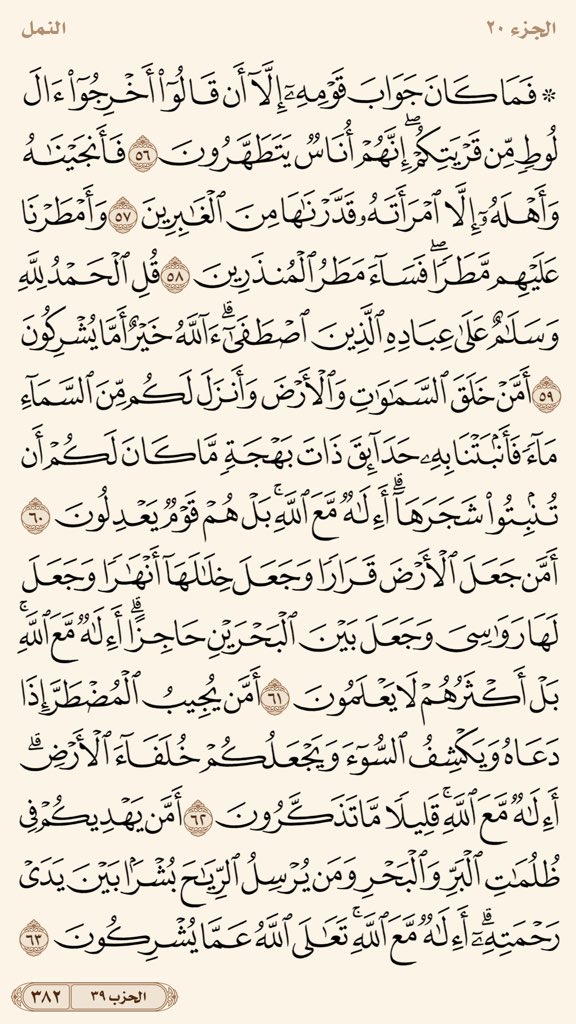 الجزء ٢٠
النمل
۞ فَمَا كَانَ جَوَابَ قَوْمِهِۦٓ إِلَّآ أَن قَالُوٓا۟ أَخْرِجُوٓا۟ ءَالَ
لُوطٍ مِّن قَرْيَتِكُمْ ۖ إِنَّهُمْ أُنَاسٌ يَتَطَهَّرُونَ ٥٦ فَأَنجَيْنَـٰهُ
وَأَهْلَهُۥٓ إِلَّا ٱمْرَأَتَهُۥ قَدَّرْنَـٰهَا مِنَ ٱلْغَـٰبِرِينَ ٥٧ وَأَمْطَرْنَا
عَلَيْهِم مَّطَرًا ۖ فَسَآءَ مَطَرُ ٱلْمُنذَرِينَ ٥٨ قُلِ ٱلْحَمْدُ لِلَّهِ
وَسَلَـٰمٌ عَلَىٰ عِبَادِهِ ٱلَّذِينَ ٱصْطَفَىٰٓ ۗ ءَآللَّهُ خَيْرٌ أَمَّا يُشْرِكُونَ
٥٩ أَمَّنْ خَلَقَ ٱلسَّمَـٰوَٰتِ وَٱلْأَرْضَ وَأَنزَلَ لَكُم مِّنَ ٱلسَّمَآءِ
مَآءً فَأَنۢبَتْنَا بِهِۦ حَدَآئِقَ ذَاتَ بَهْجَةٍ مَّا كَانَ لَكُمْ أَن
تُنۢبِتُوا۟ شَجَرَهَآ ۗ أَءِلَـٰهٌ مَّعَ ٱللَّهِ ۚ بَلْ هُمْ قَوْمٌ يَعْدِلُونَ ٦٠
أَمَّن جَعَلَ ٱلْأَرْضَ قَرَارًا وَجَعَلَ خِلَـٰلَهَآ أَنْهَـٰرًا وَجَعَلَ
لَهَا رَوَٰسِىَ وَجَعَلَ بَيْنَ ٱلْبَحْرَيْنِ حَاجِزًا ۗ أَءِلَـٰهٌ مَّعَ ٱللَّهِ ۚ
بَلْ أَكْثَرُهُمْ لَا يَعْلَمُونَ ٦١ أَمَّن يُجِيبُ ٱلْمُضْطَرَّ إِذَا
دَعَاهُ وَيَكْشِفُ ٱلسُّوٓءَ وَيَجْعَلُكُمْ خُلَفَآءَ ٱلْأَرْضِ ۗ
أَءِلَـٰهٌ مَّعَ ٱللَّهِ ۚ قَلِيلًا مَّا تَذَكَّرُونَ ٦٢ أَمَّن يَهْدِيكُمْ فِى
ظُلُمَـٰتِ ٱلْبَرِّ وَٱلْبَحْرِ وَمَن يُرْسِلُ ٱلرِّيَـٰحَ بُشْرًۢا بَيْنَ يَدَىْ
رَحْمَتِهِۦٓ ۗ أَءِلَـٰهٌ مَّعَ ٱللَّهِ ۚ تَعَـٰلَى ٱللَّهُ عَمَّا يُشْرِكُونَ ٦٣
الحزب ٣٩
٣٨٢